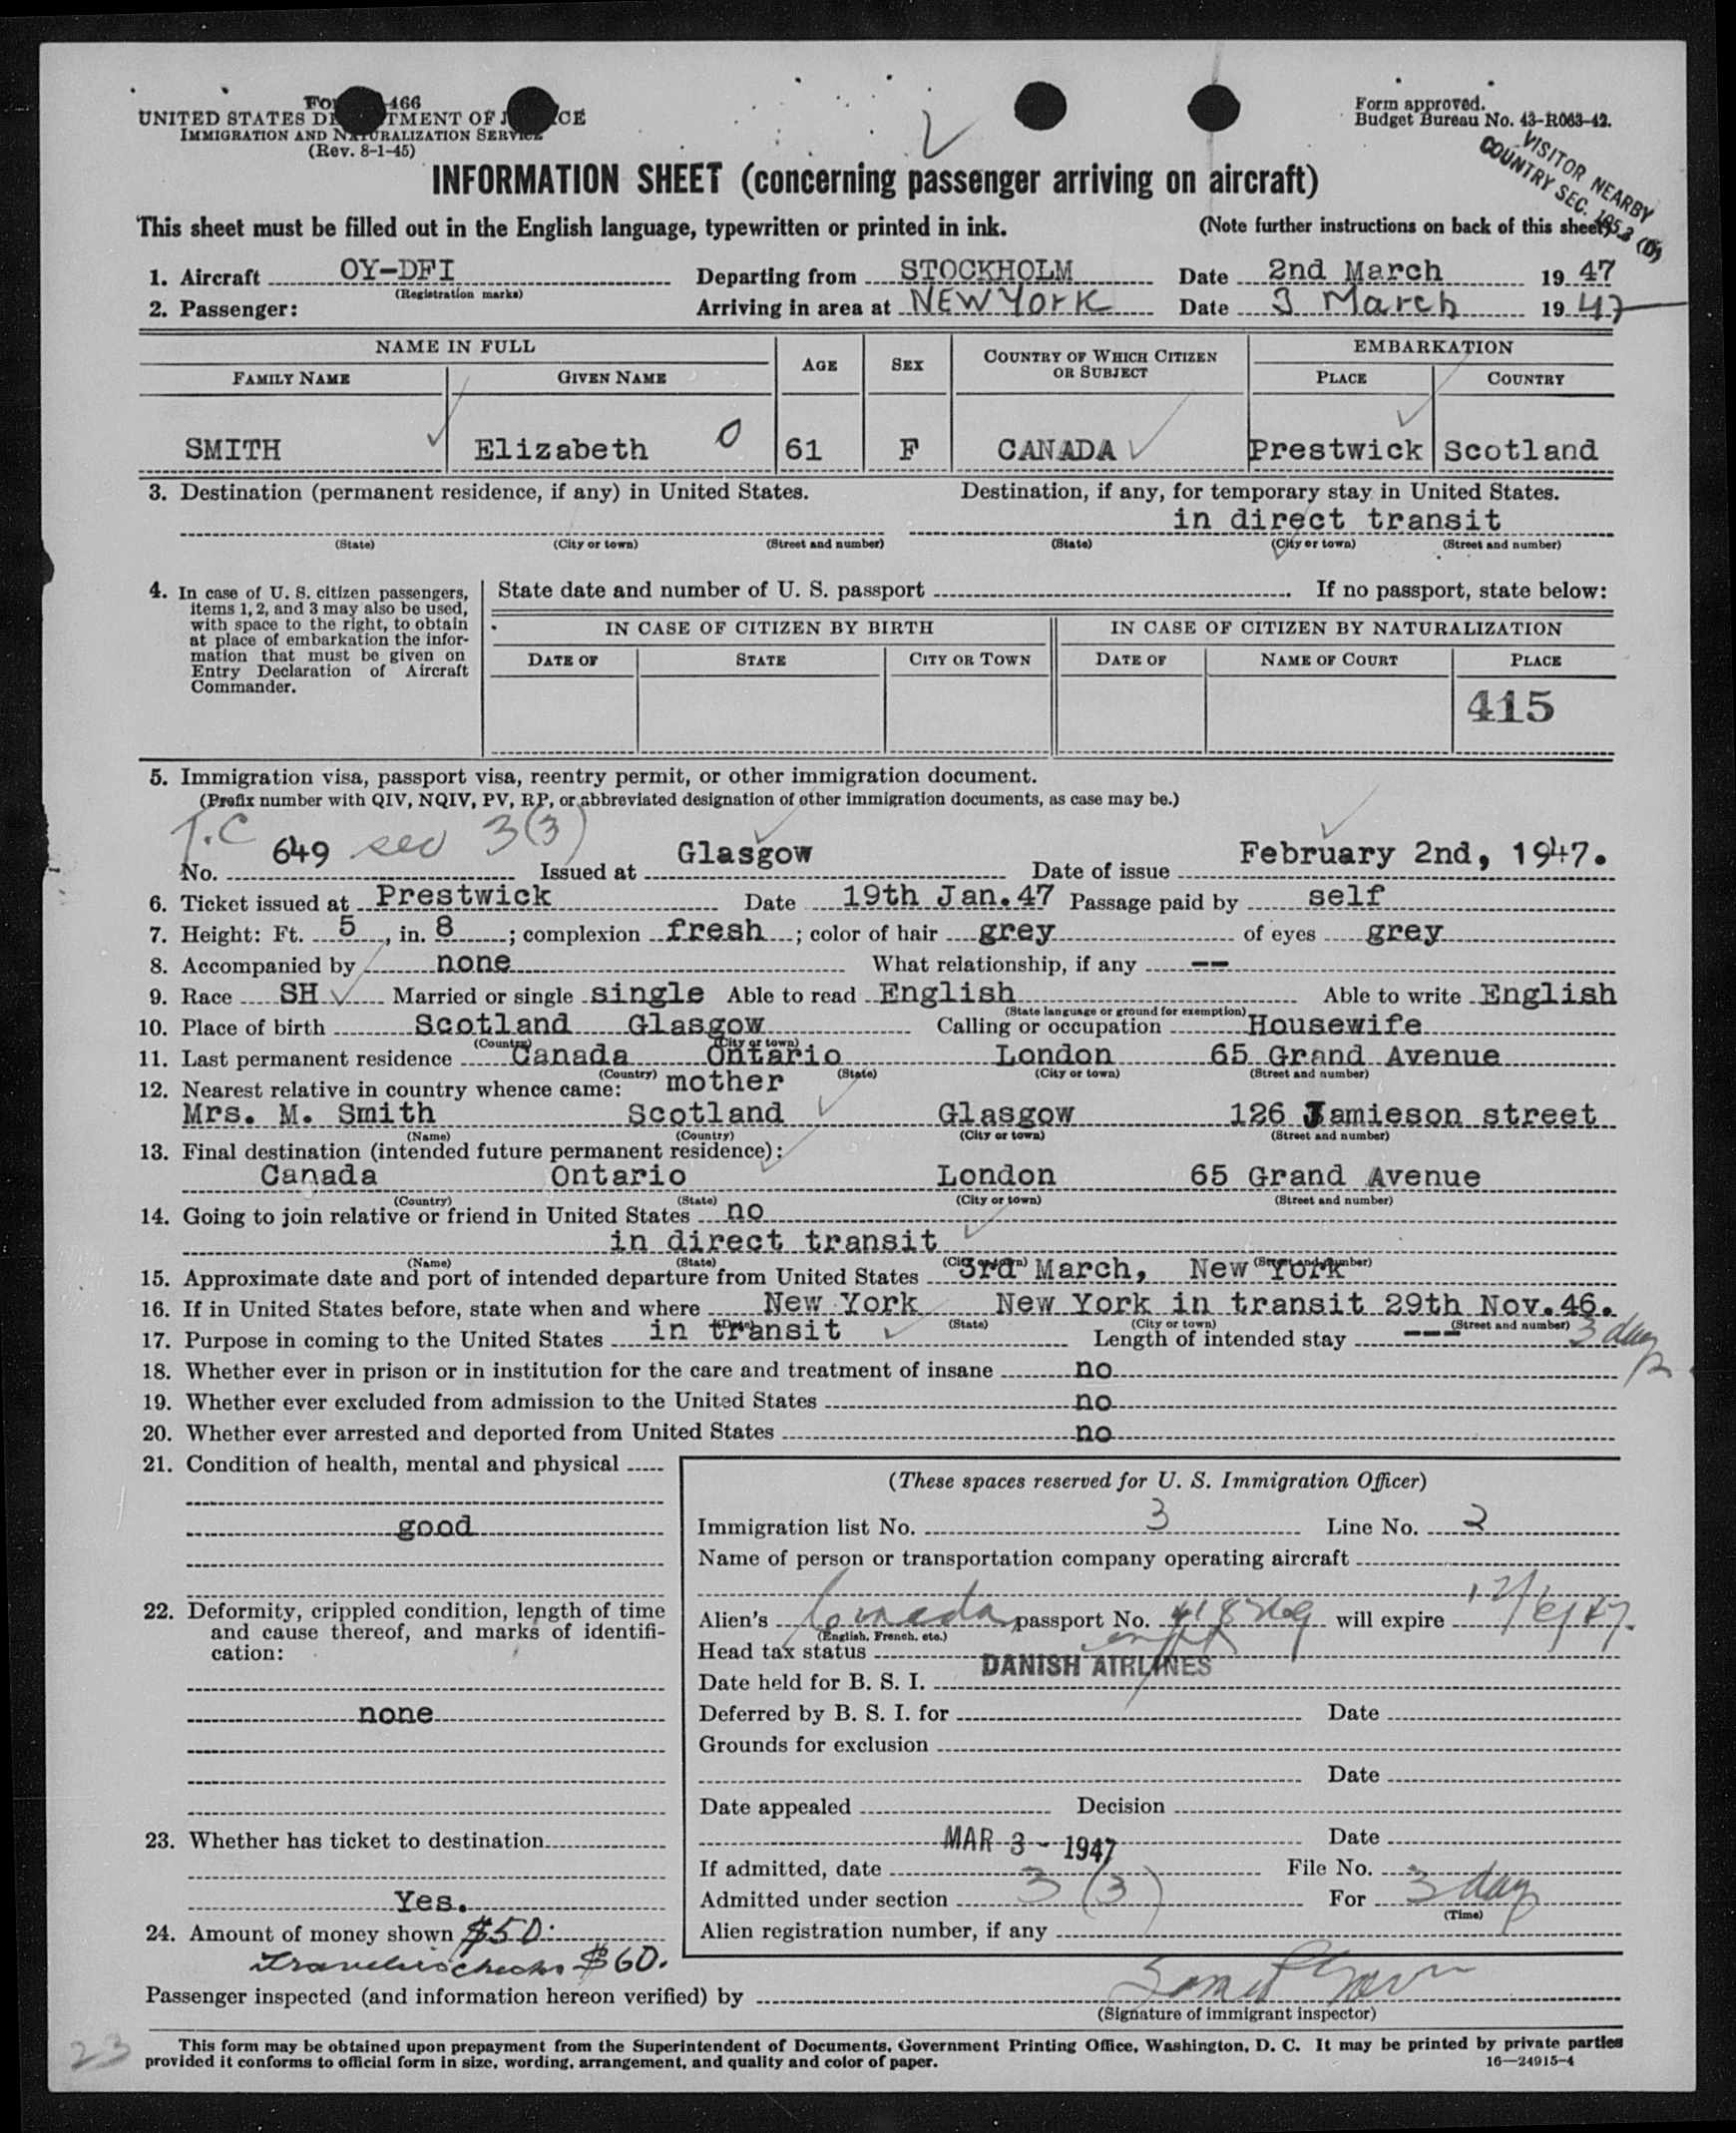 466
UNITED STATES DEPARTMENT OF JUSTICE
IMMIGRATION AND NATURALIZATION SERVICE
(Rev. 8-1-45)
Form approved.
Budget Bureau No. 43-R063-42.
VISITOR NEARBY
COUNTRY SEC.
INFORMATION SHEET (concerning passenger arriving on aircraft)
This sheet must be filled out in the English language, typewritten or printed in ink. (Note further instructions on back of this sheet)
1. Aircraft OY-DFI Departing from STOCKHOLM Date 2nd March 19 47
(Registration marks)
2. Passenger: Arriving in area at NEW YORK Date 3 March 19 47
NAME IN FULL AGE SEX COUNTRY OF WHICH CITIZEN OR SUBJECT EMBARKATION
FAMILY NAME GIVEN NAME PLACE COUNTRY
SMITH Elizabeth 0 61 F CANADA Prestwick Scotland
3. Destination (permanent residence, if any) in United States. Destination, if any, for temporary stay in United States.
in direct transit
(State) (City or town) (Street and number) (State) (City or town) (Street and number)
4. In case of U. S. citizen passengers, items 1, 2, and 3 may also be used, with space to the right, to obtain at place of embarkation the information that must be given on Entry Declaration of Aircraft Commander.
State date and number of U. S. passport If no passport, state below:
IN CASE OF CITIZEN BY BIRTH IN CASE OF CITIZEN BY NATURALIZATION
DATE OF STATE CITY OR TOWN DATE OF NAME OF COURT PLACE
415
5. Immigration visa, passport visa, reentry permit, or other immigration document.
(Prefix number with QIV, NQIV, PV, RP, or abbreviated designation of other immigration documents, as case may be.)
T.C sec 3(3)
No. 649 Issued at Glasgow Date of issue February 2nd, 1947.
6. Ticket issued at Prestwick Date 19th Jan.47 Passage paid by self
7. Height: Ft. 5, in. 8; complexion fresh; color of hair grey of eyes grey
8. Accompanied by none What relationship, if any --
9. Race SH Married or single single Able to read English Able to write English
(State language or ground for exemption)
10. Place of birth Scotland Glasgow Calling or occupation Housewife
(Country) (City or town)
11. Last permanent residence Canada Ontario London 65 Grand Avenue
(Country) (State) (City or town) (Street and number)
12. Nearest relative in country whence came: mother
Mrs. M. Smith Scotland Glasgow 126 Jamieson street
(Name) (Country) (City or town) (Street and number)
13. Final destination (intended future permanent residence):
Canada Ontario London 65 Grand Avenue
(Country) (State) (City or town) (Street and number)
14. Going to join relative or friend in United States no
in direct transit
(Name) (State) (City or town) (Street and number)
15. Approximate date and port of intended departure from United States 3rd March, New York
16. If in United States before, state when and where New York New York in transit 29th Nov.46.
(Date) (State) (City or town) (Street and number)
17. Purpose in coming to the United States in transit Length of intended stay --- 3 days
18. Whether ever in prison or in institution for the care and treatment of insane no
19. Whether ever excluded from admission to the United States no
20. Whether ever arrested and deported from United States no
21. Condition of health, mental and physical
good
22. Deformity, crippled condition, length of time and cause thereof, and marks of identification:
none
23. Whether has ticket to destination
Yes.
24. Amount of money shown $50:
Travelers checks $60.
(These spaces reserved for U. S. Immigration Officer)
Immigration list No. 3 Line No. 2
Name of person or transportation company operating aircraft
Alien's Canada passport No. will expire
(English, French, etc.)
Head tax status
DANISH AIRLINES
Date held for B. S. I.
Deferred by B. S. I. for Date
Grounds for exclusion
Date
Date appealed Decision
Date
If admitted, date MAR 3 - 1947 File No.
Admitted under section 3 (3) For 3 days
(Time)
Alien registration number, if any
Passenger inspected (and information hereon verified) by
(Signature of immigrant inspector)
23
This form may be obtained upon prepayment from the Superintendent of Documents, Government Printing Office, Washington, D. C. It may be printed by private parties
provided it conforms to official form in size, wording, arrangement, and quality and color of paper. 16—24915-4